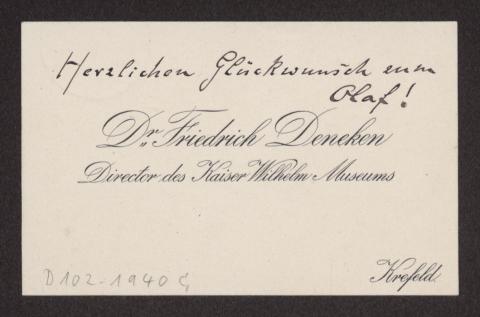 Herzlichen Glückwunsch zum
Olaf!
Dr. Friedrich Deneken
Director des Kaiser Wilhelm Museums
Krefeld.
D 102-1940 G